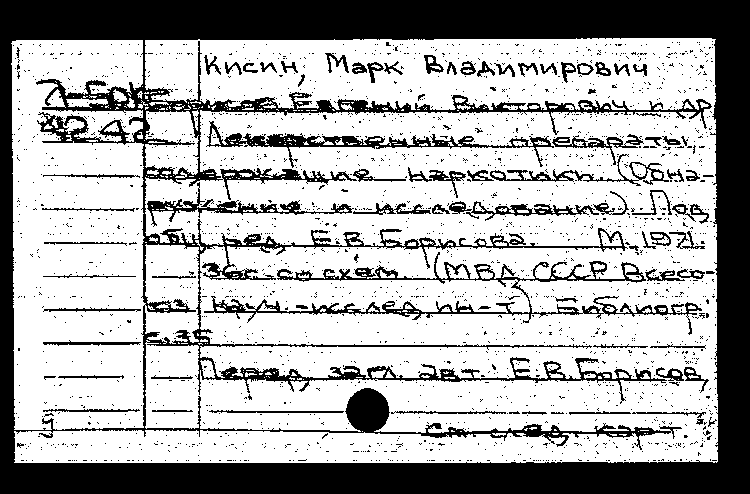 Кисин, Марк Владимирович
Л-БрК
42 42
Борисов, Евгений Викторович и др
Лекарственные препараты,
содержащие наркотики. (Обна-
ружение и исследование). Под
общ. ред. Е.В. Борисова. М. 1971.
36с. со схем. (МВД СССР Всесо-
юз науч.-исслед. ин-т). Библиогр:
с.35
Перед загл. авт.: Е.В. Борисов,
См. след. карт.